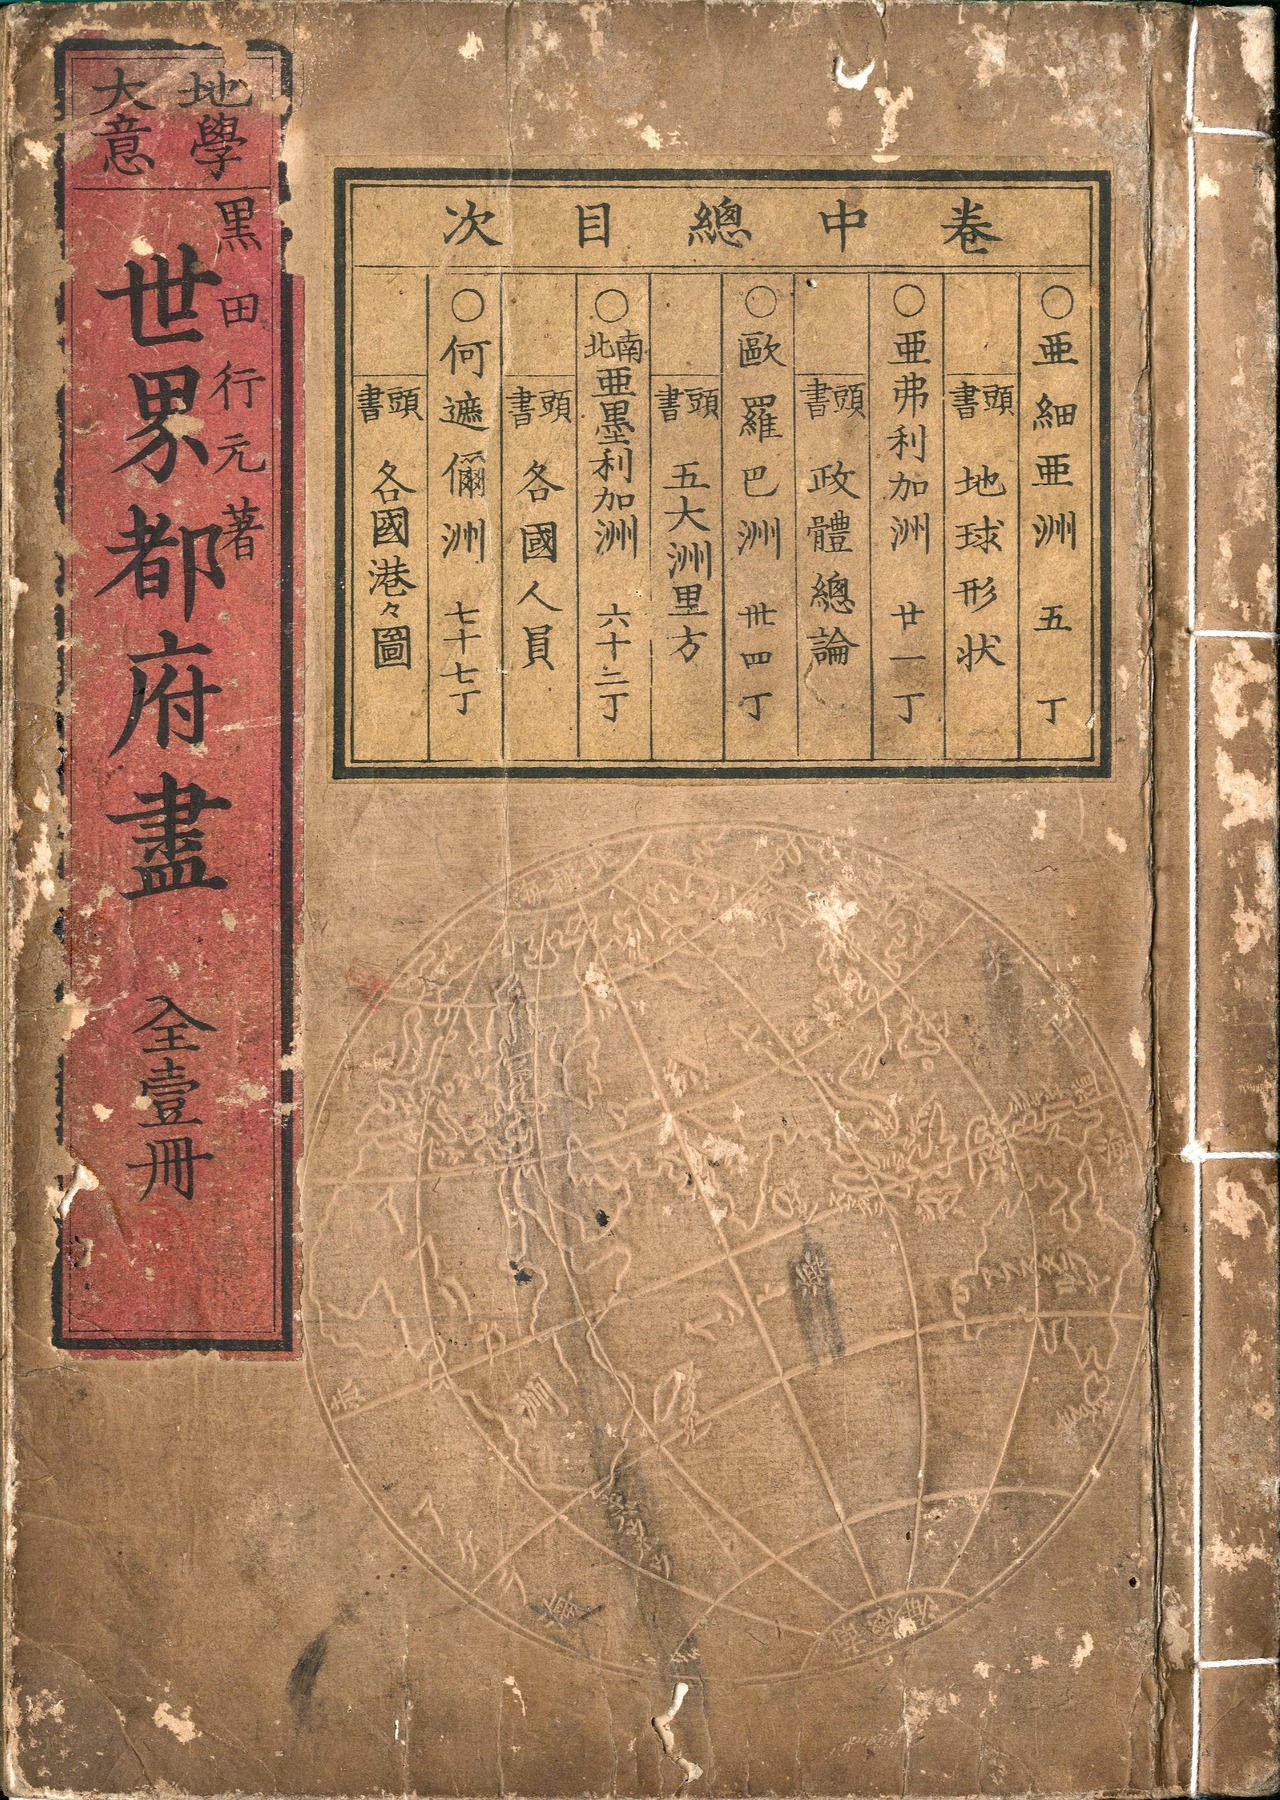 卷中總目次
○亜細亜洲 五丁
頭書 地球形状
○亜弗利加洲 廿一丁
頭書 政體總論
○歐羅巴洲 卅四丁
頭書 五大洲里方
○南北亜墨利加洲 六十二丁
頭書 各國人員
○何遮儞洲 七十七丁
頭書 各國港々圖
地學
大意
黒田行元著
世界都府盡 全壹冊